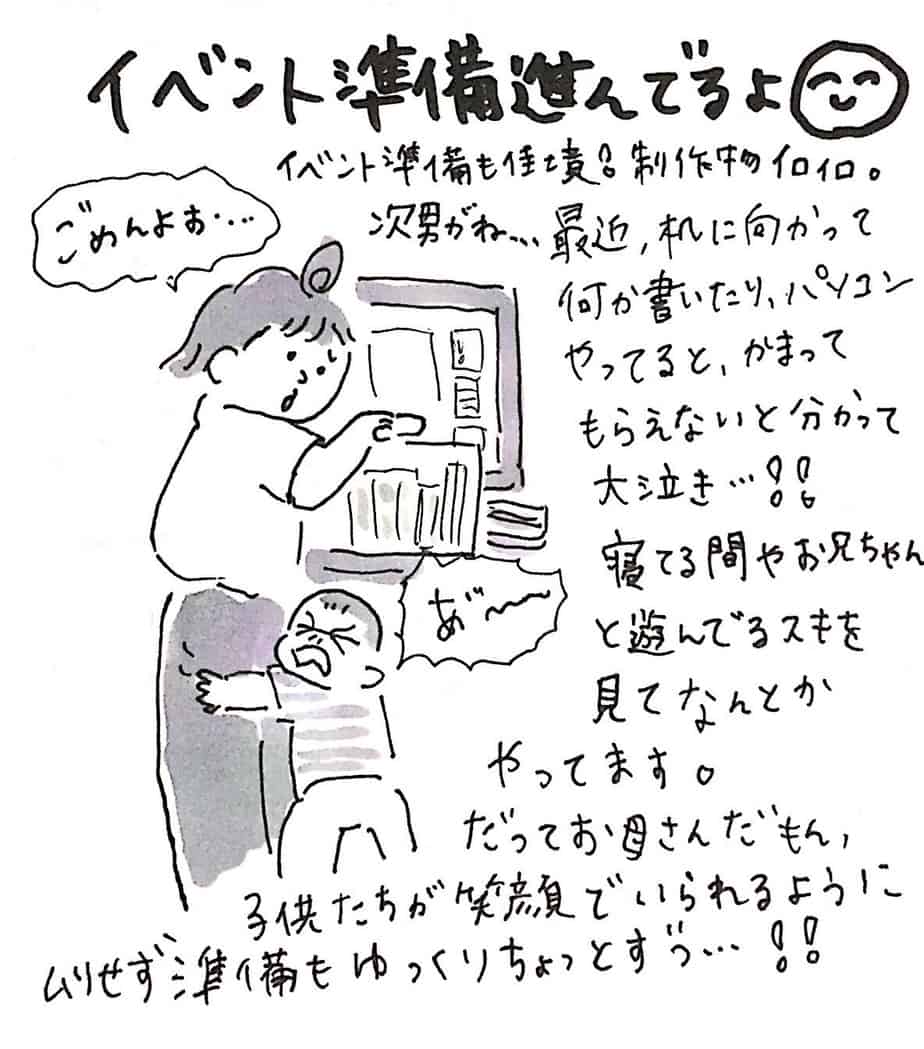 イベント準備進んでるよ
イベント準備も佳境!制作物イロイロ。
ごめんよぉ…
次男がね… 最近,机に向かって
何か書いたり、パソコン
やってると、かまって
もらえないと分かって
大泣き…!!
寝てる間やお兄ちゃん
と遊んでるスキを
見てなんとか
やってます。
あ゛〜
だってお母さんだもん,
子供たちが笑顔でいられるように
ムリせず準備もゆっくりちょっとずつ…!!